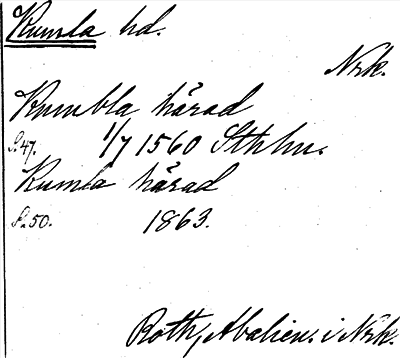 Kumla hd.
Nrk.
Kumbla härad
S. 47. 1/7 1560 Sthlm.
Kumla härad
S. 50. 1863.
Roth, i Nrk.